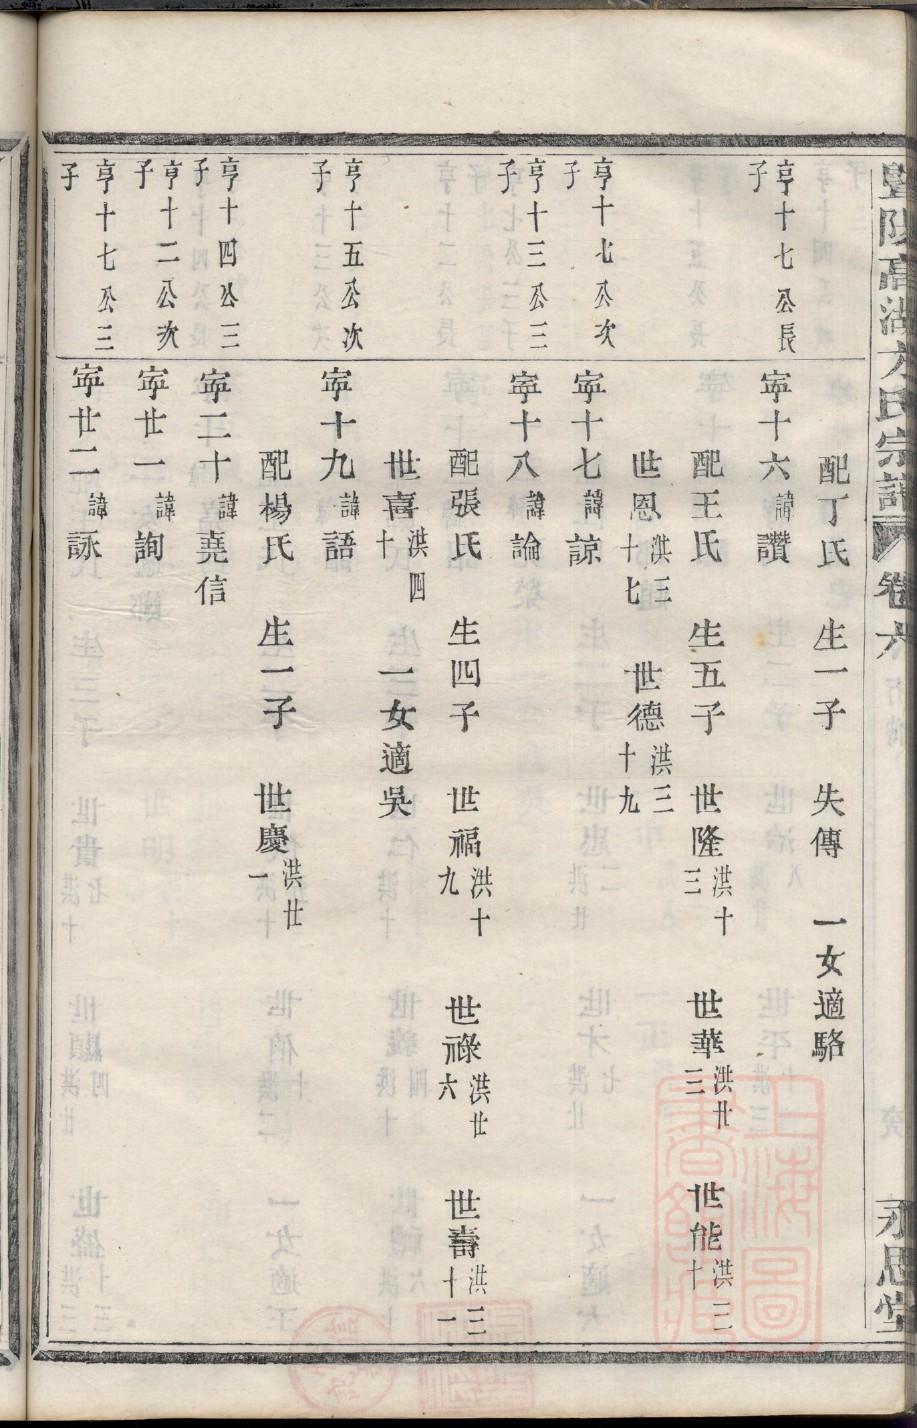 暨陽高湖方氏宗譜 卷六 永思堂
配丁氏 生一子 失傳 一女適駱
亨十七公長子 寜十六諱讚
配王氏 生五子 世隆洪十三 世華洪廿三 世能洪三十
世恩洪三十七 世德洪三十九
亨十七公次子 寜十七諱諒
亨十三公三子 寜十八諱論
配張氏 生四子 世福洪十九 世祿洪廿六 世壽洪三十一
世喜洪四十 一女適吳
亨十五公次子 寜十九諱語
配楊氏 生一子 世慶洪廿一
亨十四公三子 寜二十諱堯信
亨十二公次子 寜廿一諱詢
亨十七公三子 寜廿二諱詠